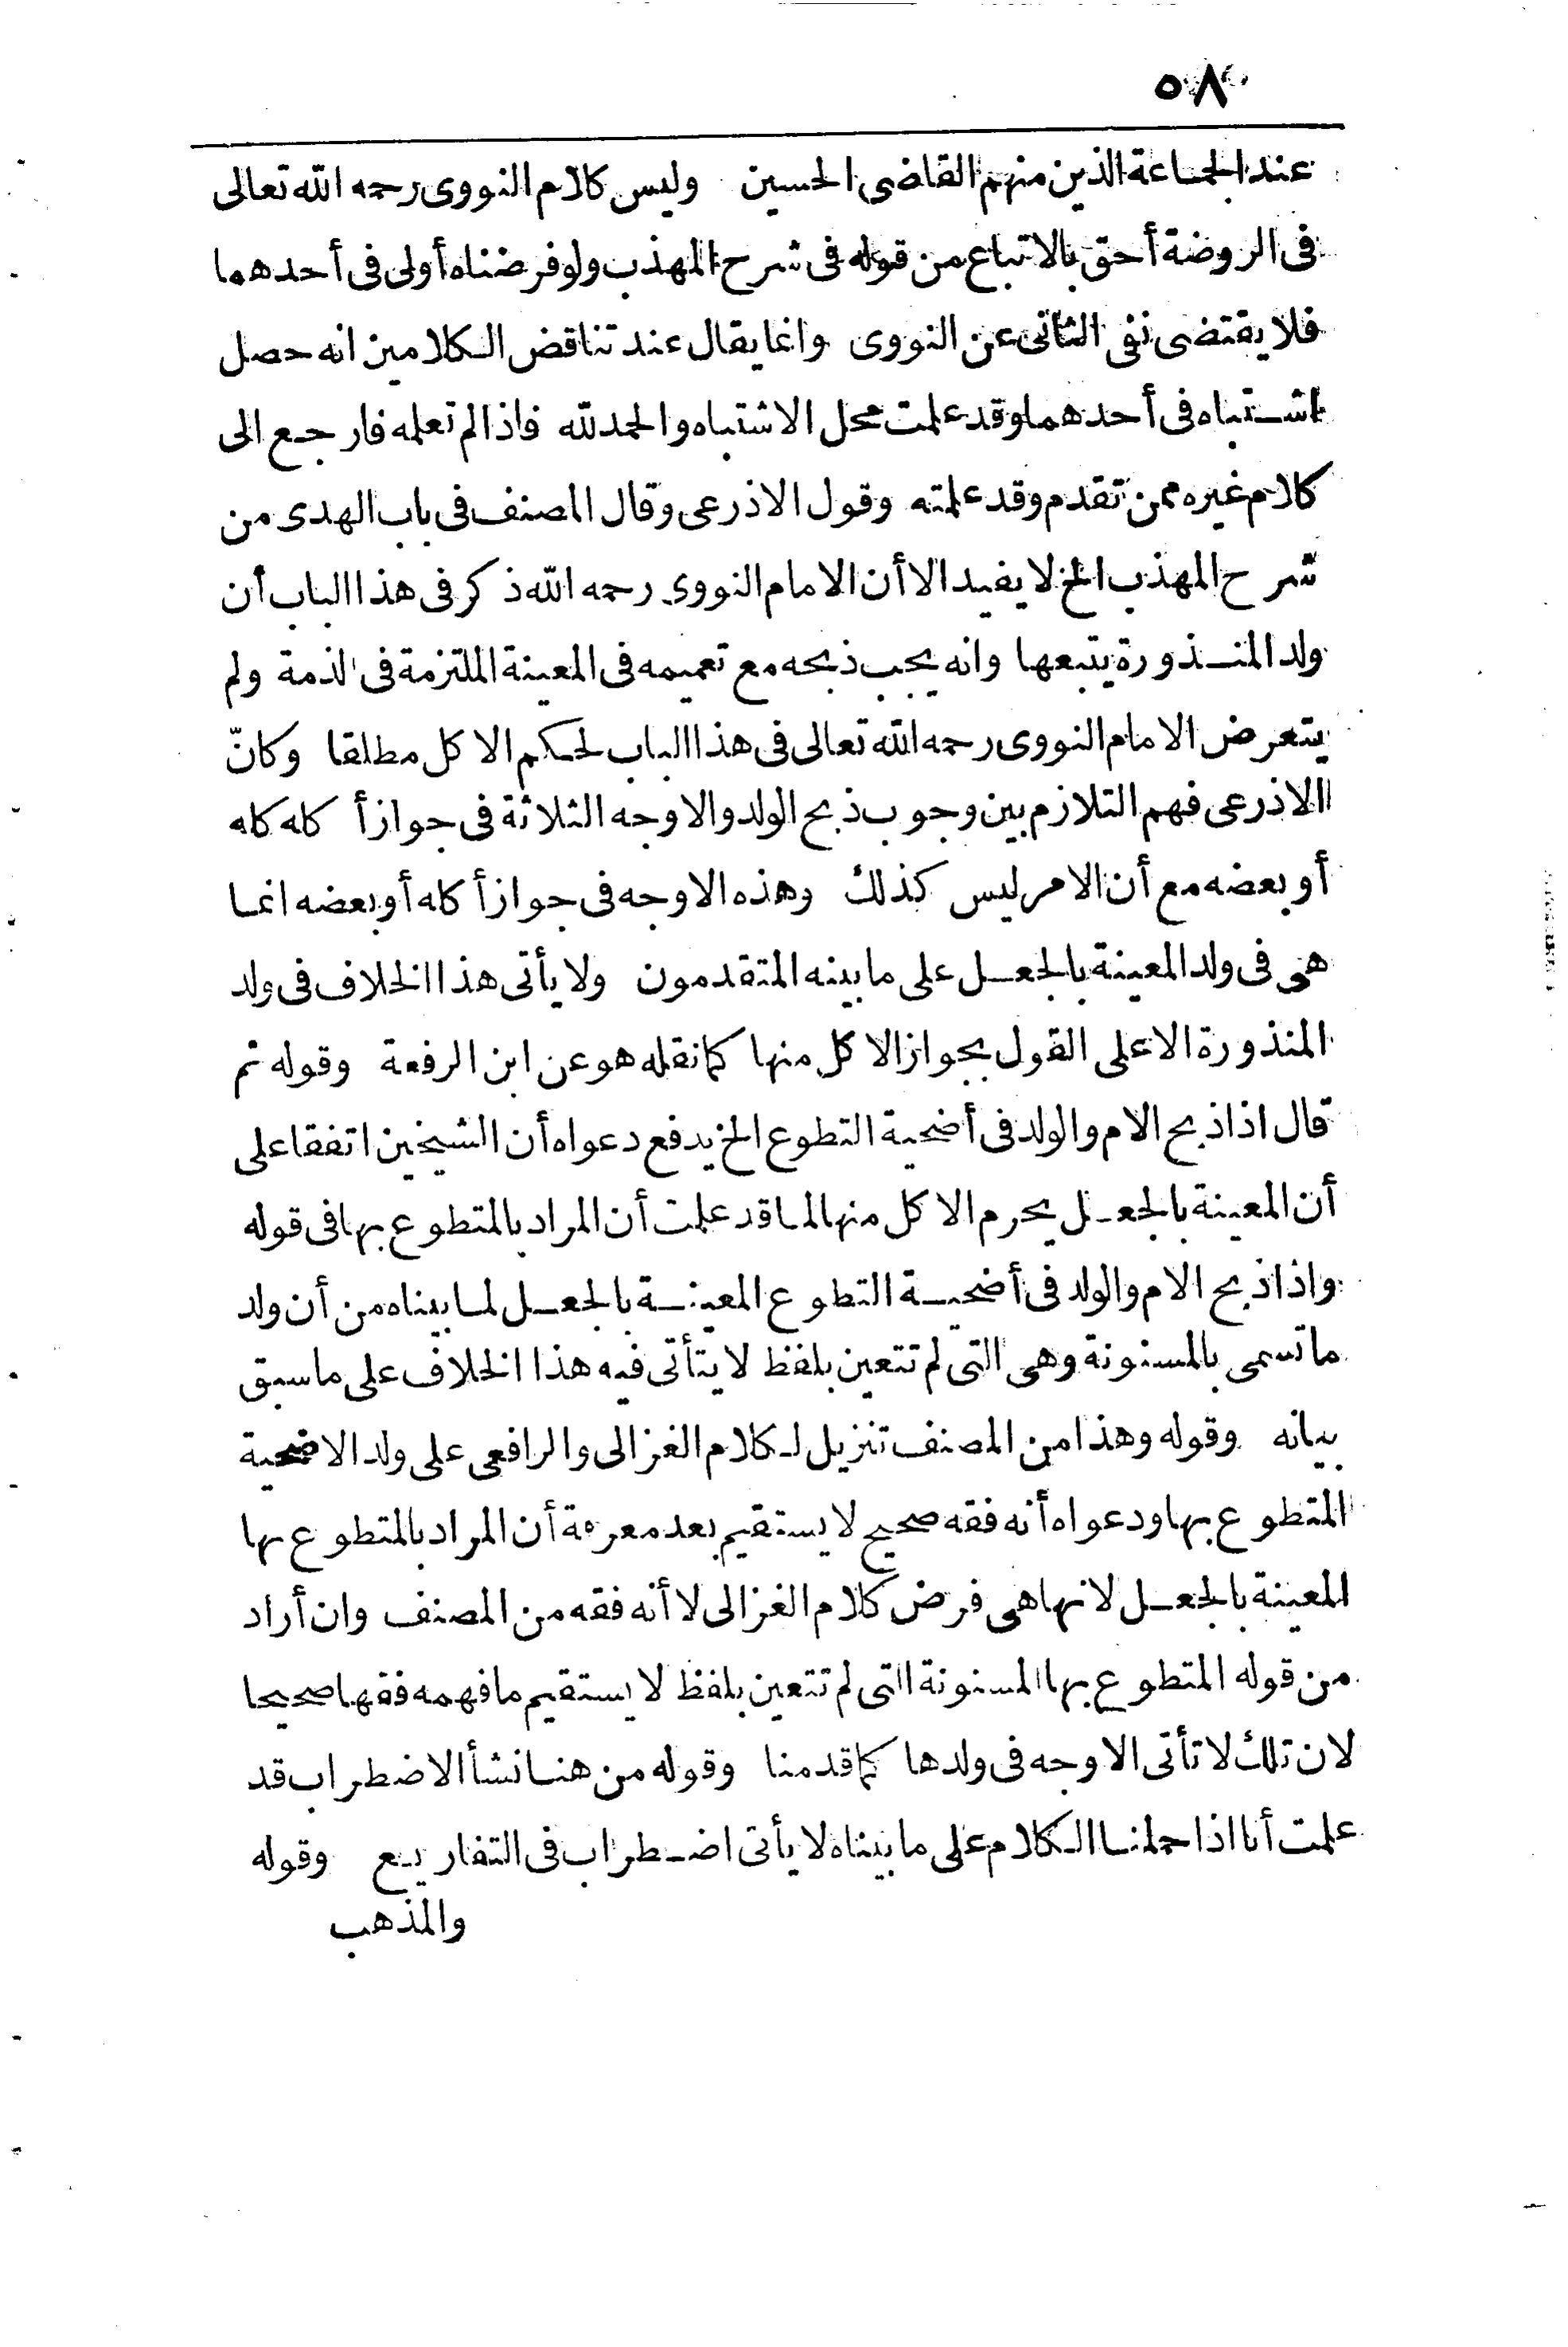 ٥٨
عند الجماعة الذين منهم القاضى الحسين وليس كلام النووى رحمه الله تعالى
فى الروضة أحق بالاتباع من قوله فى شرح المهذب ولو فرضناه أولى فى أحدهما
فلا يقتضى نفى الثانى عن النووى وانما يقال عند تناقض الكلامين انه حصل
اشتباه فى أحدهما وقد علمت محل الاشتباه والحمد لله فاذا لم تعلمه فارجع الى
كلام غيره ممن تقدم وقد علمته وقول الاذرعى وقال المصنف فى باب الهدى من
شرح المهذب الخ لا يفيد الا أن الامام النووى رحمه الله ذكر فى هذا الباب أن
ولد المنذورة يتبعها وانه يجب ذبحه مع تعميمه فى المعينة الملتزمة فى الذمة ولم
يتعرض الامام النووى رحمه الله تعالى فى هذا الباب لحكم الاكل مطلقا وكانّ
الاذرعى فهم التلازم بين وجوب ذبح الولد والاوجه الثلاثة فى جواز أكله كله
أو بعضه مع أن الامر ليس كذلك وهذه الاوجه فى جواز أكله أو بعضه انما
هى فى ولد المعينة بالجعل على ما بينه المتقدمون ولا يأتى هذا الخلاف فى ولد
المنذورة الا على القول بجواز الاكل منها كما نقله هو عن ابن الرفعة وقوله ثم
قال اذا ذبح الام والولد فى أضحية التطوع الخ يدفع دعواه أن الشيخين اتفقا على
أن المعينة بالجعل يحرم الاكل منها لما قد علمت أن المراد بالمتطوع بها فى قوله
واذا ذبح الام والولد فى أضحية التطوع المعينة بالجعل لما بيناه من أن ولد
ما تسمى بالمسنونة وهى التى لم تتعين بلفظ لا يتأتى فيه هذا الخلاف على ما سبق
بيانه وقوله وهذا من المصنف تنزيل لكلام الغزالى والرافعى على ولد الاضحية
المتطوع بها ودعواه أنه فقه صحيح لا يستقيم بعد معرفة أن المراد بالمتطوع بها
المعينة بالجعل لانها هى فرض كلام الغزالى لا أنه فقه من المصنف وان أراد
من قوله المتطوع بها المسنونة التى لم تتعين بلفظ لا يستقيم ما فهمه فقها صحيحا
لان تلك لا تأتى الاوجه فى ولدها كما قدمنا وقوله من هنا نشأ الاضطراب قد
علمت أنا اذا حملنا الكلام على ما بيناه لا يأتى اضطراب فى التفاريع وقوله
والمذهب